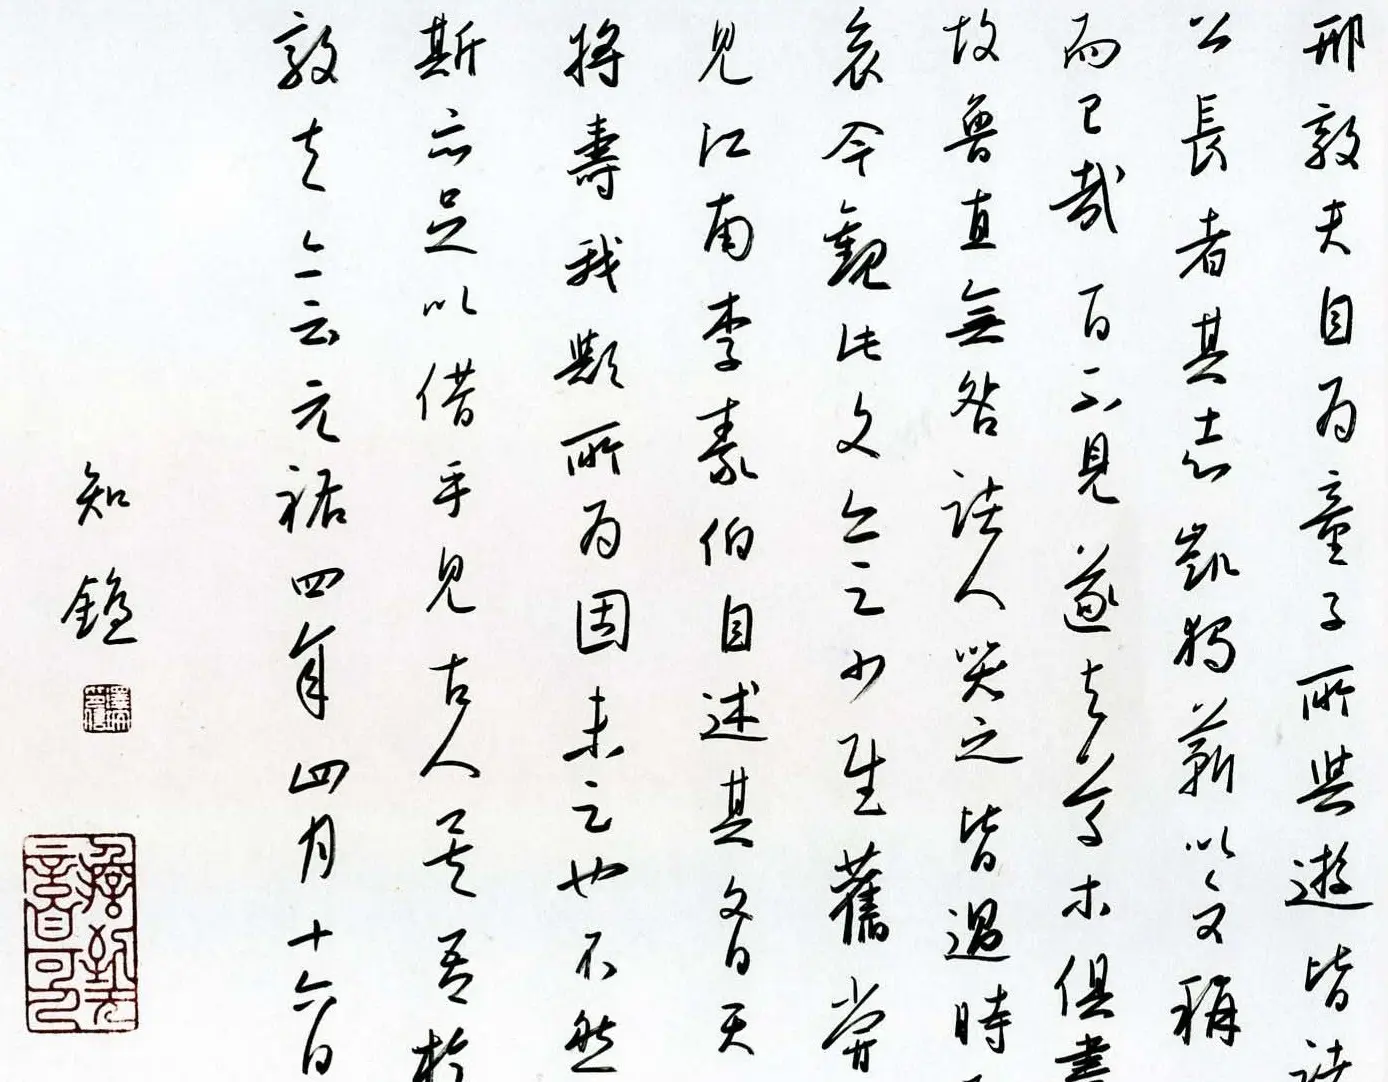 邢敦夫自為童子所與遊皆諸
公長者其志豈獨蘄以文稱
而已哉一日不見遂與草木俱盡
故魯直無咎諸人哭之皆過時而
哀今觀此文亦足少慰舊嘗
見江南李泰伯自述其文曰天
將壽我歟所為固未足也不然
斯亦足以藉手見古人矣吾於
敦夫亦云元祐四年四月十六日
知鐙